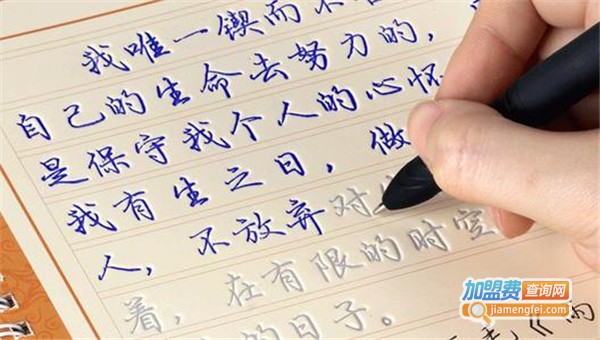 我唯一锲而不
自己的生命去努力的，
是保守我个人的心怀
我有生之日，做
人，不放弃对
着，在有限的时空
的日子。
《雨
加盟费查询网
jiamengfei.com